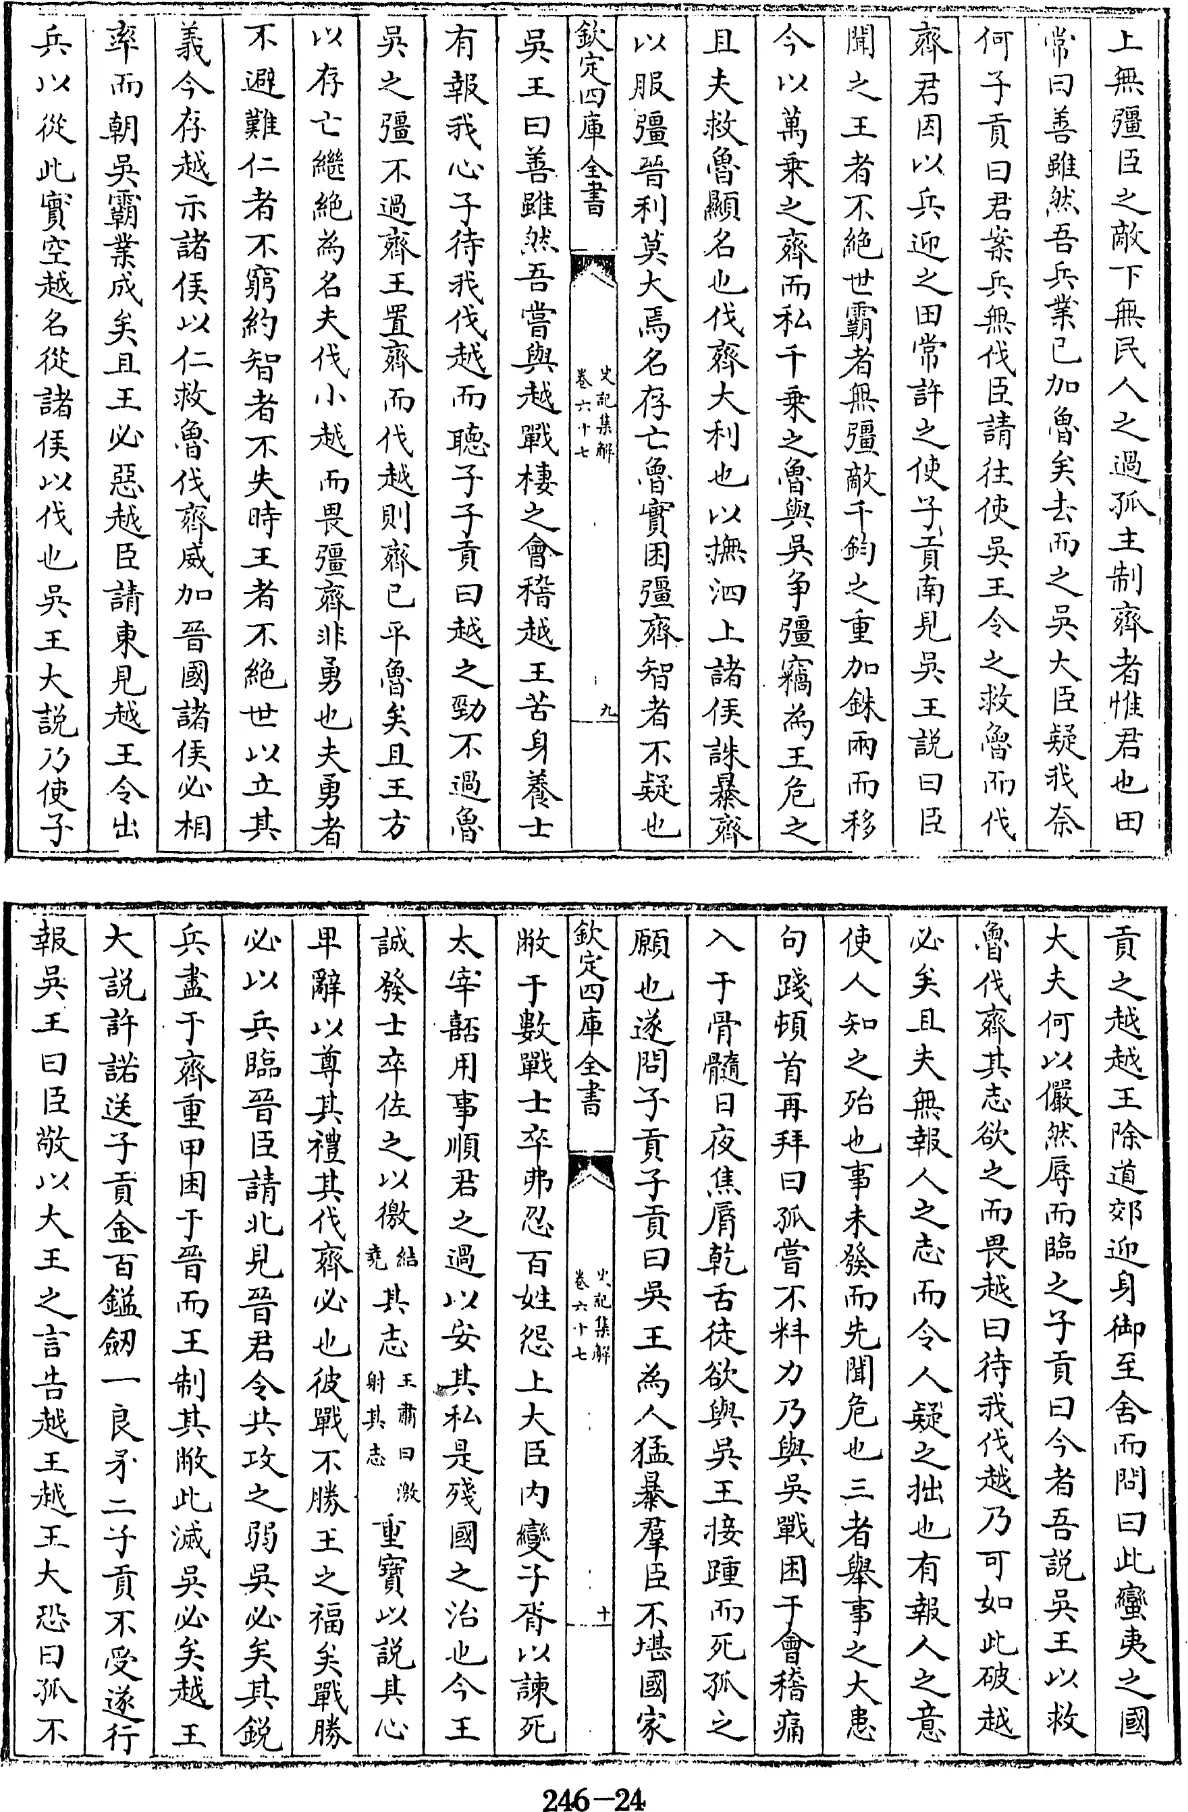 上無彊臣之敵下無民人之過孤主制齊者惟君也田
常曰善雖然吾兵業已加魯矣去而之吳大臣疑我奈
何子貢曰君案兵無伐臣請往使吳王令之救魯而伐
齊君因以兵迎之田常許之使子貢南見吳王說曰臣
聞之王者不絕世霸者無彊敵千鈞之重加銖兩而移
今以萬乗之齊而私千乗之魯與吳爭彊竊為王危之
且夫救魯顯名也伐齊大利也以撫泗上諸侯誅暴齊
以服彊晉利莫大焉名存亡魯實困彊齊智者不疑也
欽定四庫全書
史記集解
卷六十七
九
吳王曰善雖然吾嘗與越戰棲之會稽越王苦身養士
有報我心子待我伐越而聽子子貢曰越之勁不過魯
吳之彊不過齊王置齊而伐越則齊已平魯矣且王方
以存亡繼絕為名夫伐小越而畏彊齊非勇也夫勇者
不避難仁者不窮約智者不失時王者不絕世以立其
義今存越示諸侯以仁救魯伐齊威加晉國諸侯必相
率而朝吳霸業成矣且王必惡越臣請東見越王令出
兵以從此實空越名從諸侯以伐也吳王大說乃使子
貢之越越王除道郊迎身御至舍而問曰此蠻夷之國
大夫何以儼然辱而臨之子貢曰今者吾說吳王以救
魯伐齊其志欲之而畏越曰待我伐越乃可如此破越
必矣且夫無報人之志而令人疑之拙也有報人之意
使人知之殆也事未發而先聞危也三者舉事之大患
句踐頓首再拜曰孤嘗不料力乃與吳戰困于會稽痛
入于骨髓日夜焦脣乾舌徒欲與吳王接踵而死孤之
願也遂問子貢子貢曰吳王為人猛暴羣臣不堪國家
欽定四庫全書
史記集解
卷六十七
十
敝于數戰士卒弗忍百姓怨上大臣内變子胥以諫死
太宰嚭用事順君之過以安其私是殘國之治也今王
誠發士卒佐之以徼結堯其志王肅曰激射其志重寶以說其心
卑辭以尊其禮其伐齊必也彼戰不勝王之福矣戰勝
必以兵臨晉臣請北見晉君令共攻之弱吳必矣其銳
兵盡于齊重甲困于晉而王制其敝此滅吳必矣越王
大說許諾送子貢金百鎰劒一良矛二子貢不受遂行
報吳王曰臣敬以大王之言告越王越王大恐曰孤不
246-24